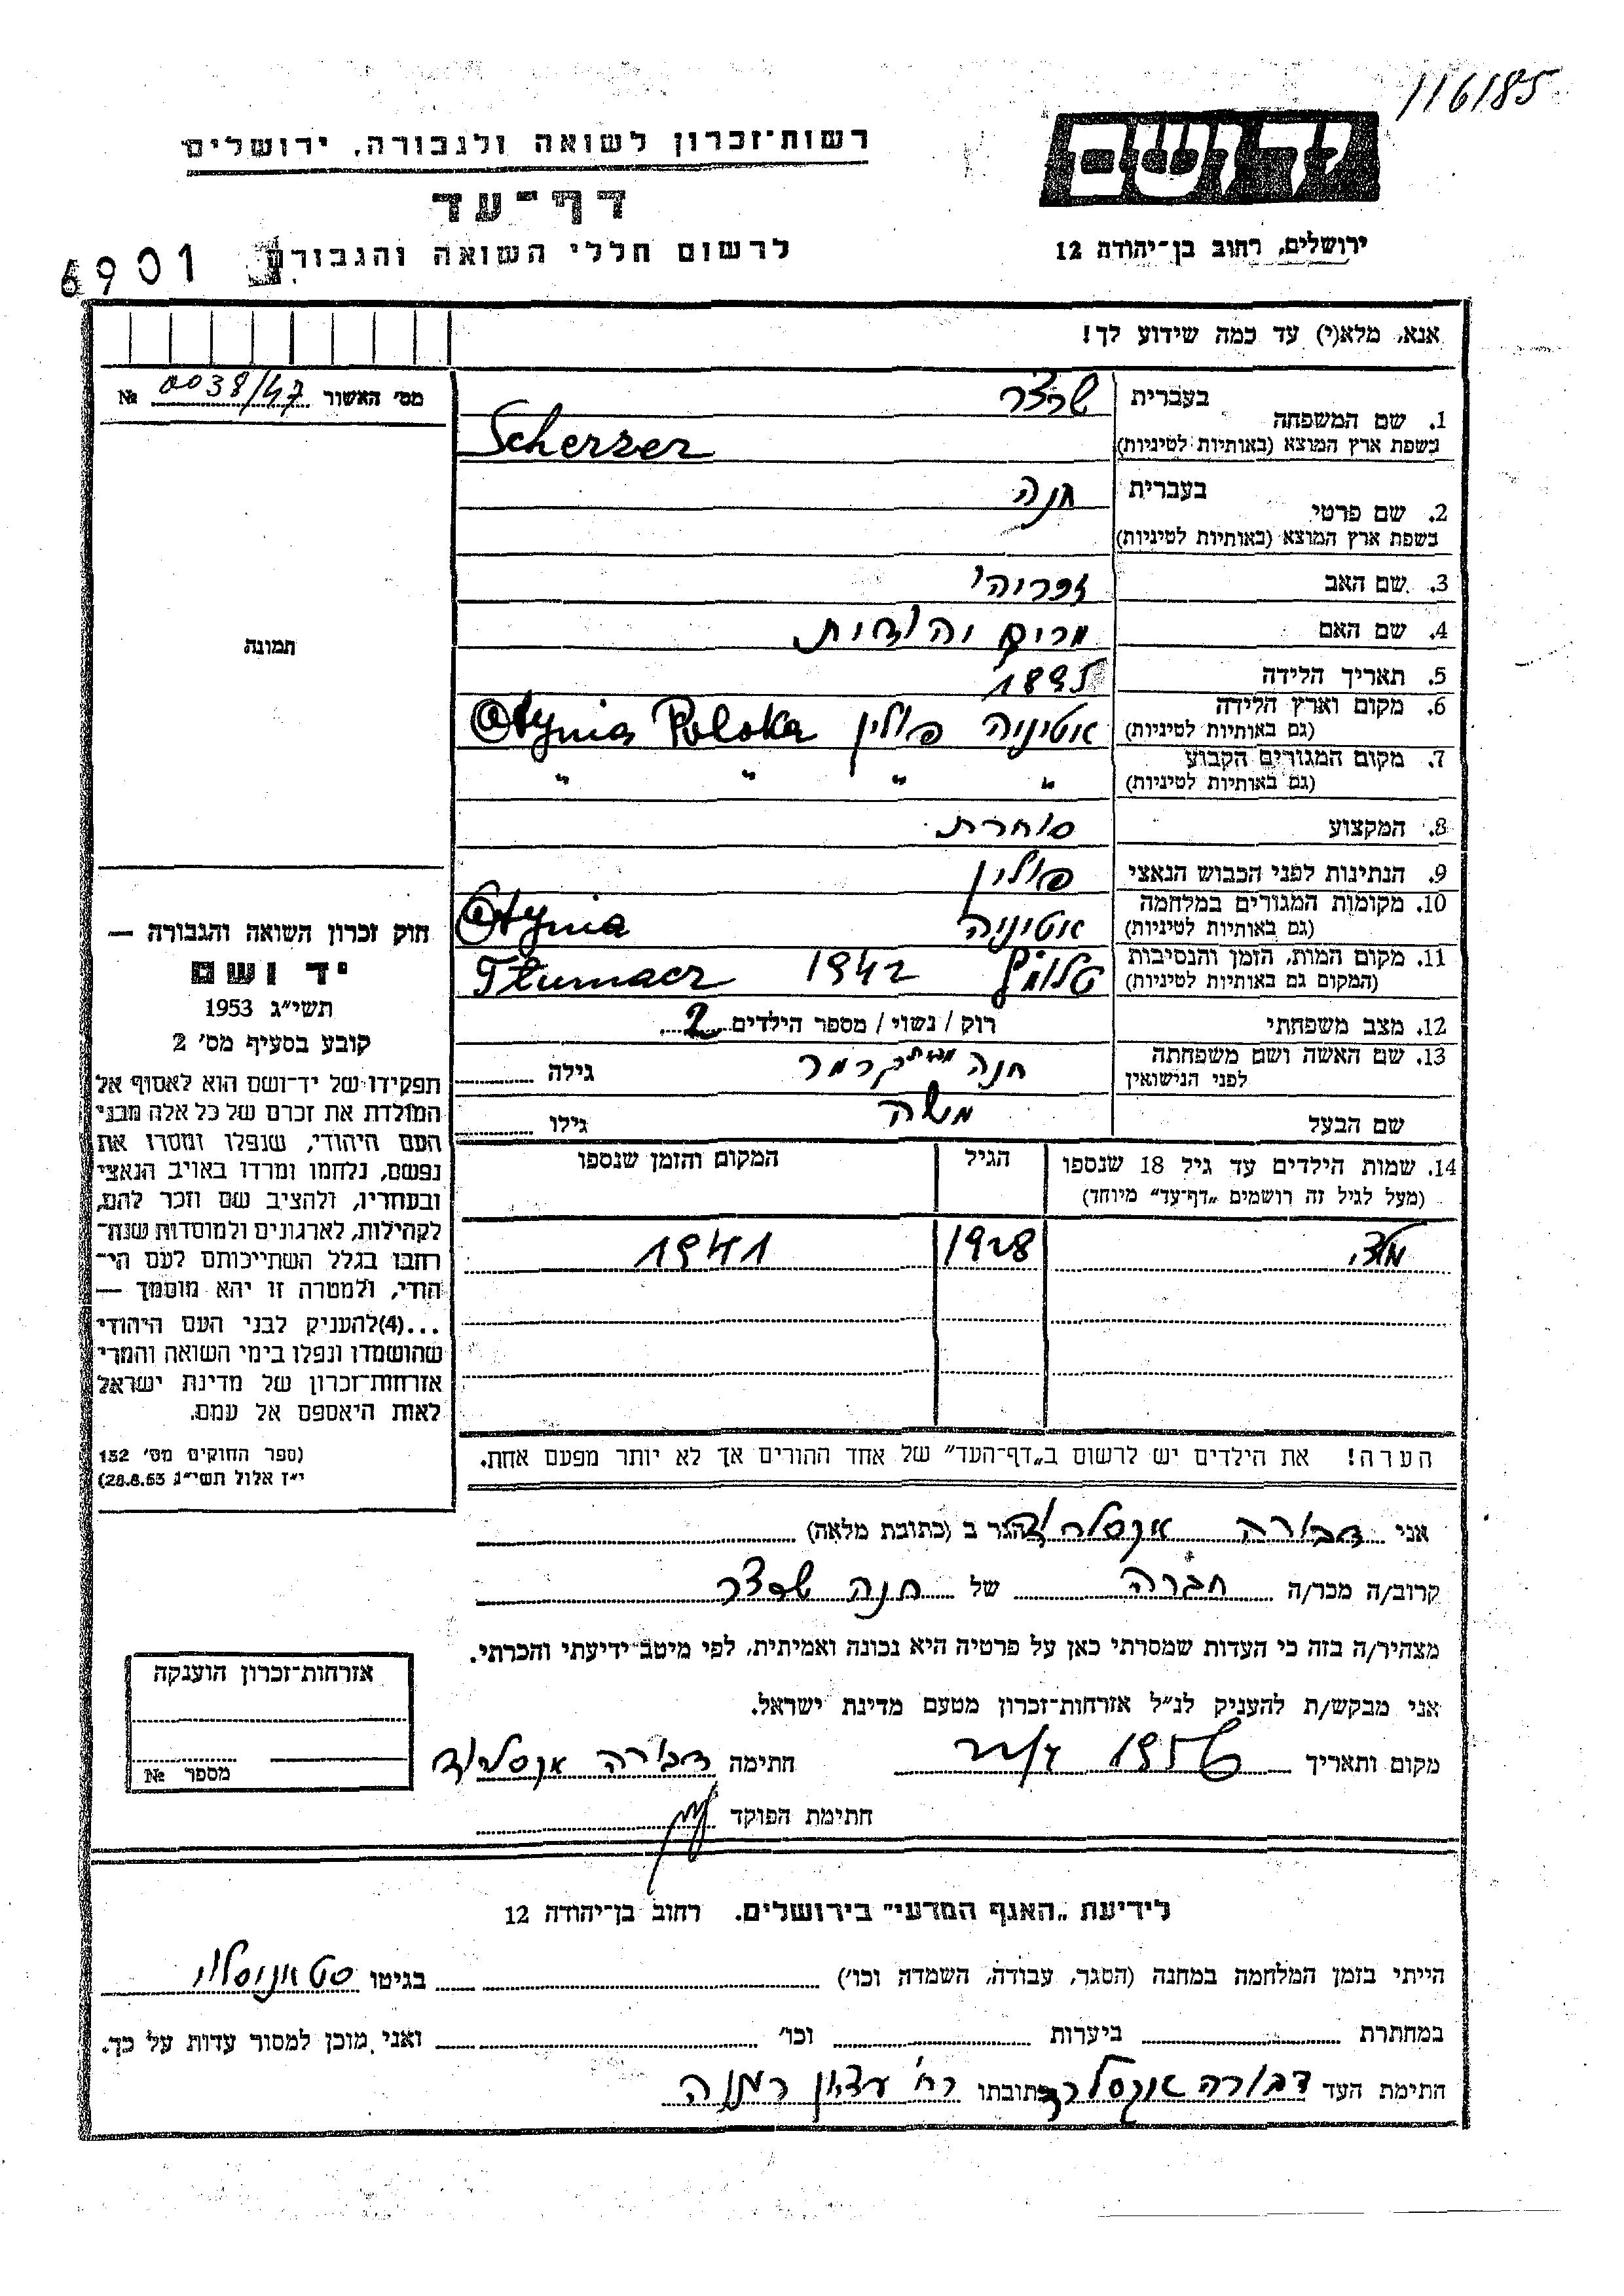 116185
יד ושם
רשות־זכרון לשואה ולגבורה, ירושלים
דף־עד
לרשום חללי השואה והגבורה
ירושלים, רחוב בן־יהודה 12
6901
אנא, מלא(י) עד כמה שידוע לך!
מס׳ האשור 0038/47 №
1. שם המשפחה בעברית שרצר
בשפת ארץ המוצא (באותיות לטיניות) Scherzer
2. שם פרטי בעברית חנה
בשפת ארץ המוצא (באותיות לטיניות)
3. שם האב זכריהו
4. שם האם מרים
5. תאריך הלידה 1895
6. מקום וארץ הלידה (גם באותיות לטיניות) אטיניה פולין Otynia Polska
7. מקום המגורים הקבוע (גם באותיות לטיניות) " " " "
8. המקצוע סוחרת
9. הנתינות לפני הכבוש הנאצי פולין
10. מקומות המגורים במלחמה (גם באותיות לטיניות) אטיניה Otynia
11. מקום המות, הזמן והנסיבות (המקום גם באותיות לטיניות) 1942 Tlumacz
12. מצב משפחתי רוק / נשוי / מספר הילדים 2
13. שם האשה ושם משפחתה לפני הנישואין חנה מבית קרמר גילה
שם הבעל משה גילו
14. שמות הילדים עד גיל 18 שנספו הגיל המקום והזמן שנספו
(מעל לגיל זה רושמים „דף־עד״ מיוחד)
1928 1941
הערה! את הילדים יש לרשום ב„דף־העד״ של אחד ההורים אך לא יותר מפעם אחת.
תמונה
חוק זכרון השואה והגבורה —
יד ושם
תשי״ג 1953
קובע בסעיף מס׳ 2
תפקידו של יד־ושם הוא לאסוף אל
המולדת את זכרם של כל אלה מבני
העם היהודי, שנפלו ומסרו את
נפשם, נלחמו ומרדו באויב הנאצי
ובעוזריו, ולהציב שם וזכר להם,
לקהילות, לארגונים ולמוסדות שנח־
רחבו בגלל השתייכותם לעם הי־
הודי, ולמטרה זו יהא מוסמך —
...(4)להעניק לבני העם היהודי
שהושמדו ונפלו בימי השואה והמרי
אזרחות־זכרון של מדינת ישראל
לאות היאספם אל עמם.
(ספר החוקים מס׳ 132
י״ז אלול תשי״ג 28.8.53)
אני דבורה הגר ב (כתובת מלאה)
קרוב/ה מכר/ה חברה של חנה שרצר
מצהיר/ה בזה כי העדות שמסרתי כאן על פרטיה היא נכונה ואמיתית, לפי מיטב ידיעתי והכרתי.
אני מבקש/ת להעניק לנ״ל אזרחות־זכרון מטעם מדינת ישראל.
מקום ותאריך 1956 חתימה דבורה
חתימת הפוקד
אזרחות־זכרון הוענקה
מספר №
לידיעת „האגף המדעי״ בירושלים. רחוב בן־יהודה 12
הייתי בזמן המלחמה במחנה (הסגר, עבודה, השמדה וכו׳) בגיטו סטאניסלוי
במחתרת ביערות וכו׳ ואני מוכן למסור עדות על כך.
חתימת העד דבורה כתובתו רח׳ עציון רמנה